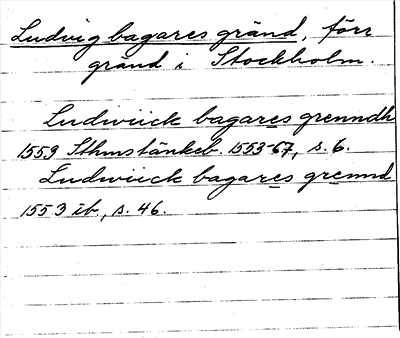 Ludvig bagares gränd, förr
gränd i Stockholm.
Ludwiick bagares grenndh
1553 Sthmstänkeb. 1553-67, s. 6.
Ludwiick bagares grennd
1553 ib., s. 46.